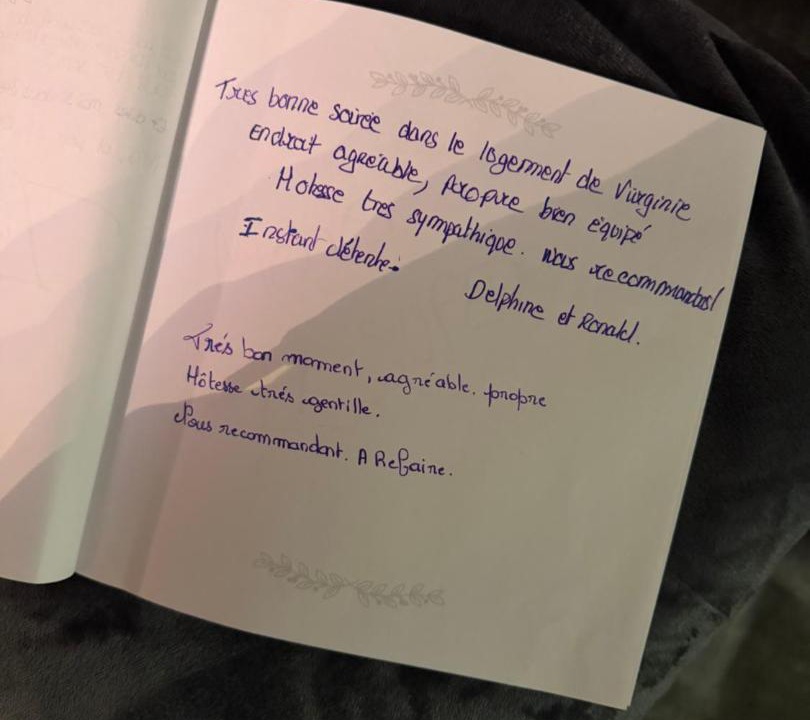 Tres bonne soirée dans le logement de Virginie
Endroit agréable, propre bien équipé
Hotesse tres sympathique. Nous recommandons!
Instant détente.
Delphine et Ronald.
Trés bon moment, agréable. propre
Hôtesse trés gentille.
Nous recommandont. A Refaire.